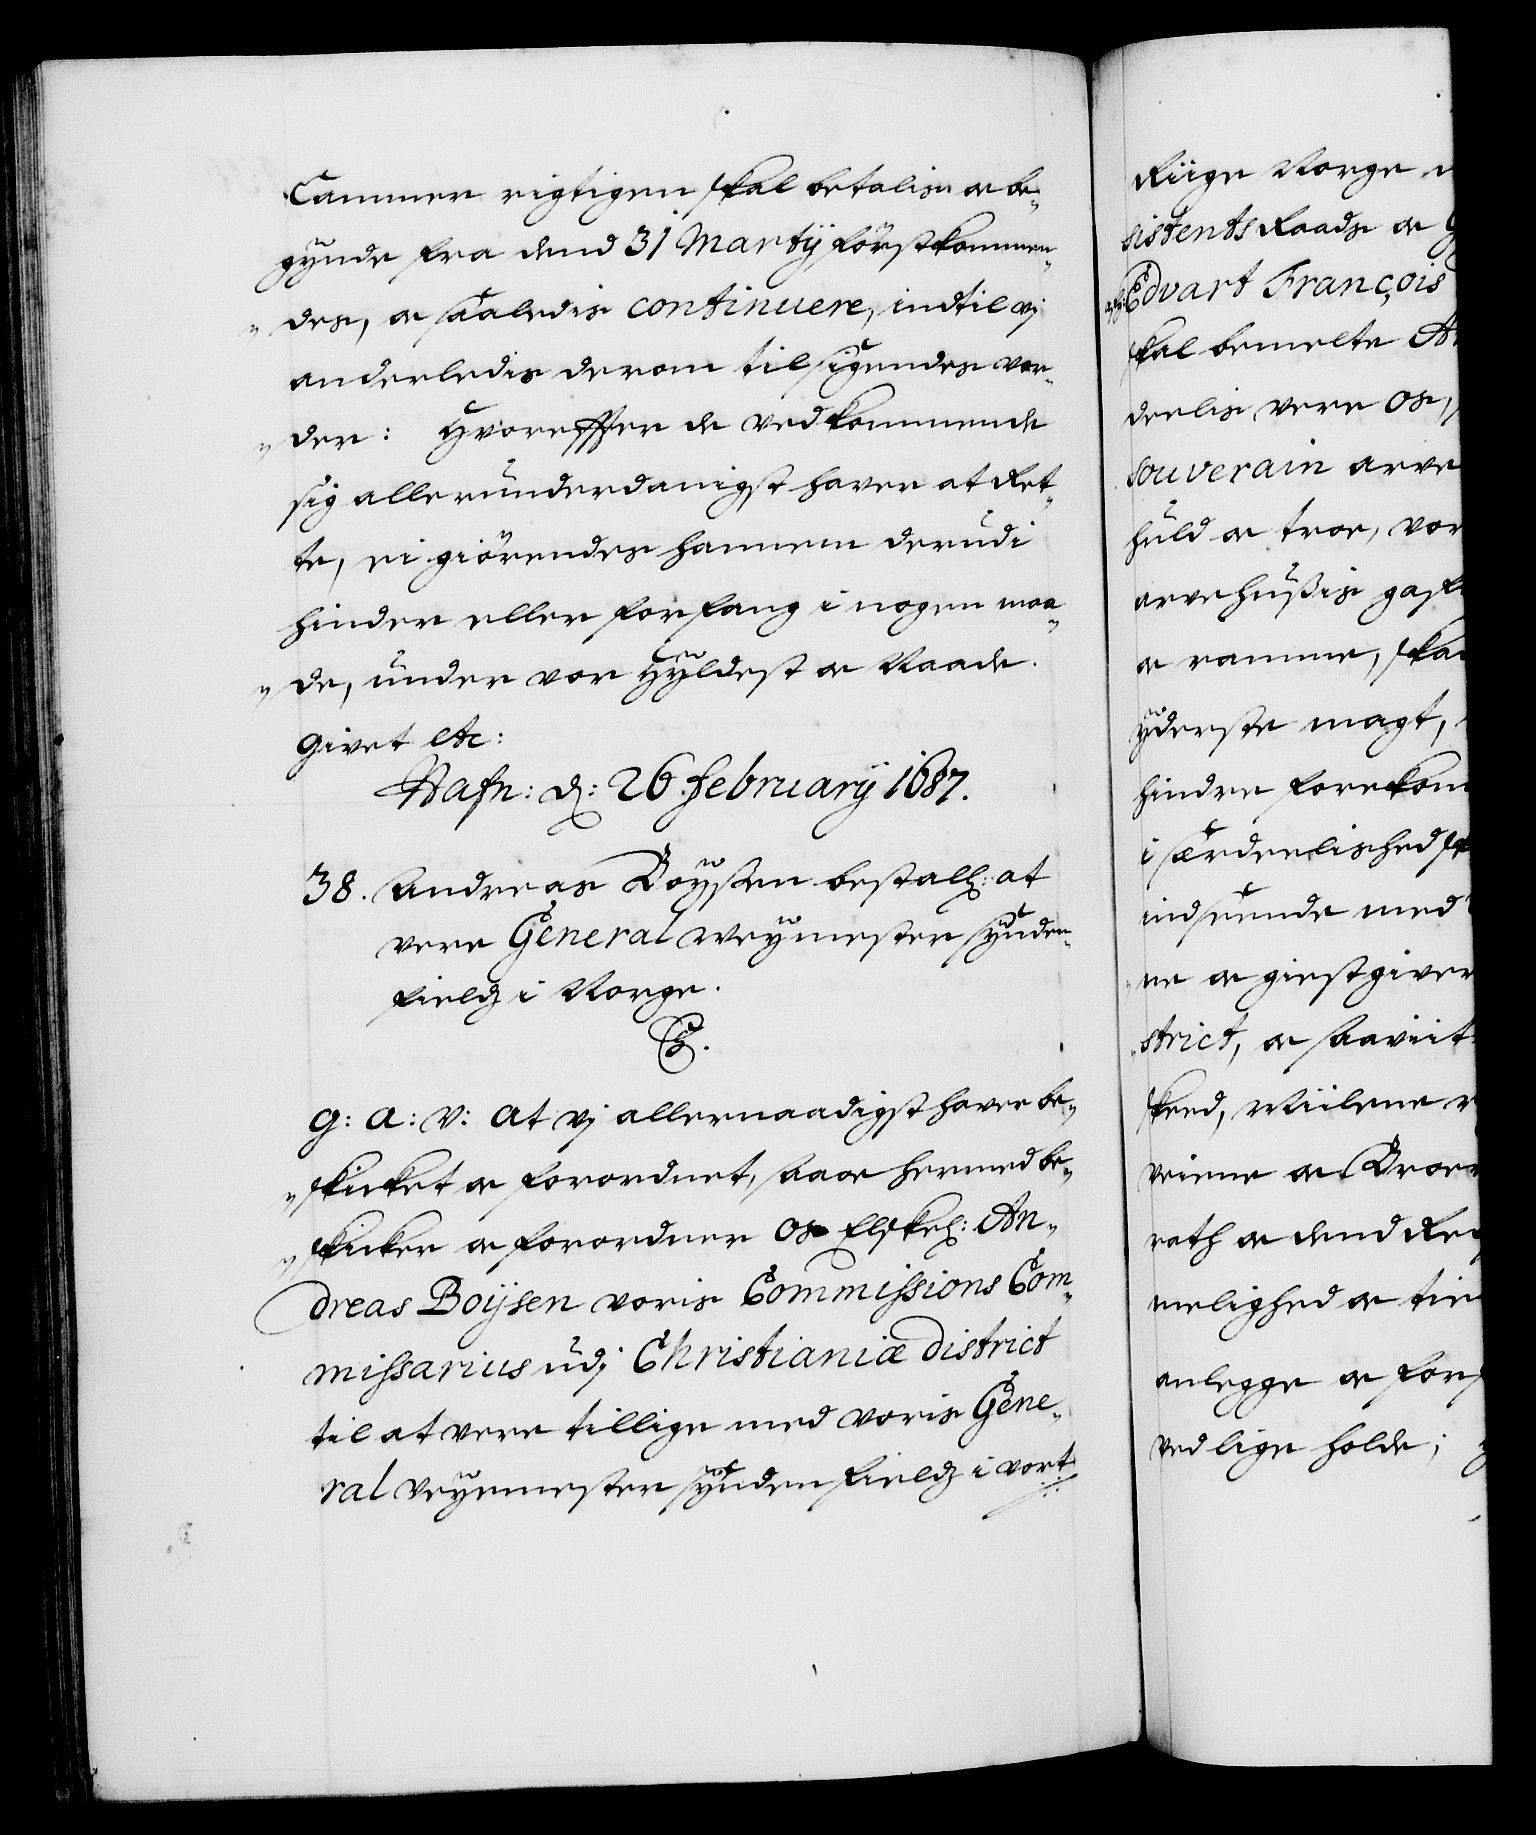 Cammer rigtigen skal betalis og be„
gynde fra dend 31 Martij förstkommen„
„des, og saaledis continuere, indtil vj
anderledis derom tilsigendes vor„
„der: Hvorefter de vedkommende
sig allerunderdanigst haver at Ret„
te, ei giörendes hannem derudi
hinder eller forfang i nogen maa„
„de, under vor Hyldest og Naade.
Givet etc:
Hafn: d: 26 februarij 1687.
38. Andreas Boysen bestall: at
vere General Weymester synden„
fields i Norge.
C5.
G: A: V: At vj allernaadigst haver be„
„skicket og forordnet, saa og hermed be„
„skicker og forordner Os Elskel: An„
dreas Boijsen voris Commissions Com„
missarius udj Christianiæ District
til at vere tillige med voris Gene„
ral Veyemester synden fields i vort
Riige Norge
sistents Raads og
Edvart François
skal bemelte
deelis vere Os,
souverain arve
huld og troe, vor
arvehussis gaf
og ramme, ska
yderste magt,
hindre forekom
i særdeelished
indseende med
ne og giestgiver
strict, og saaviit
skeed, Miilene
veiene og Broer
rath og dend
melighed og tie
anlegge og for
ved lige holde;